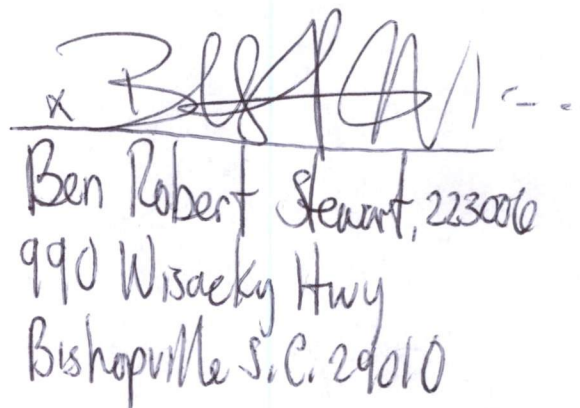 x
Ben Robert Stewart, 223006
990 Wisacky Hwy
Bishopville S.C. 29010